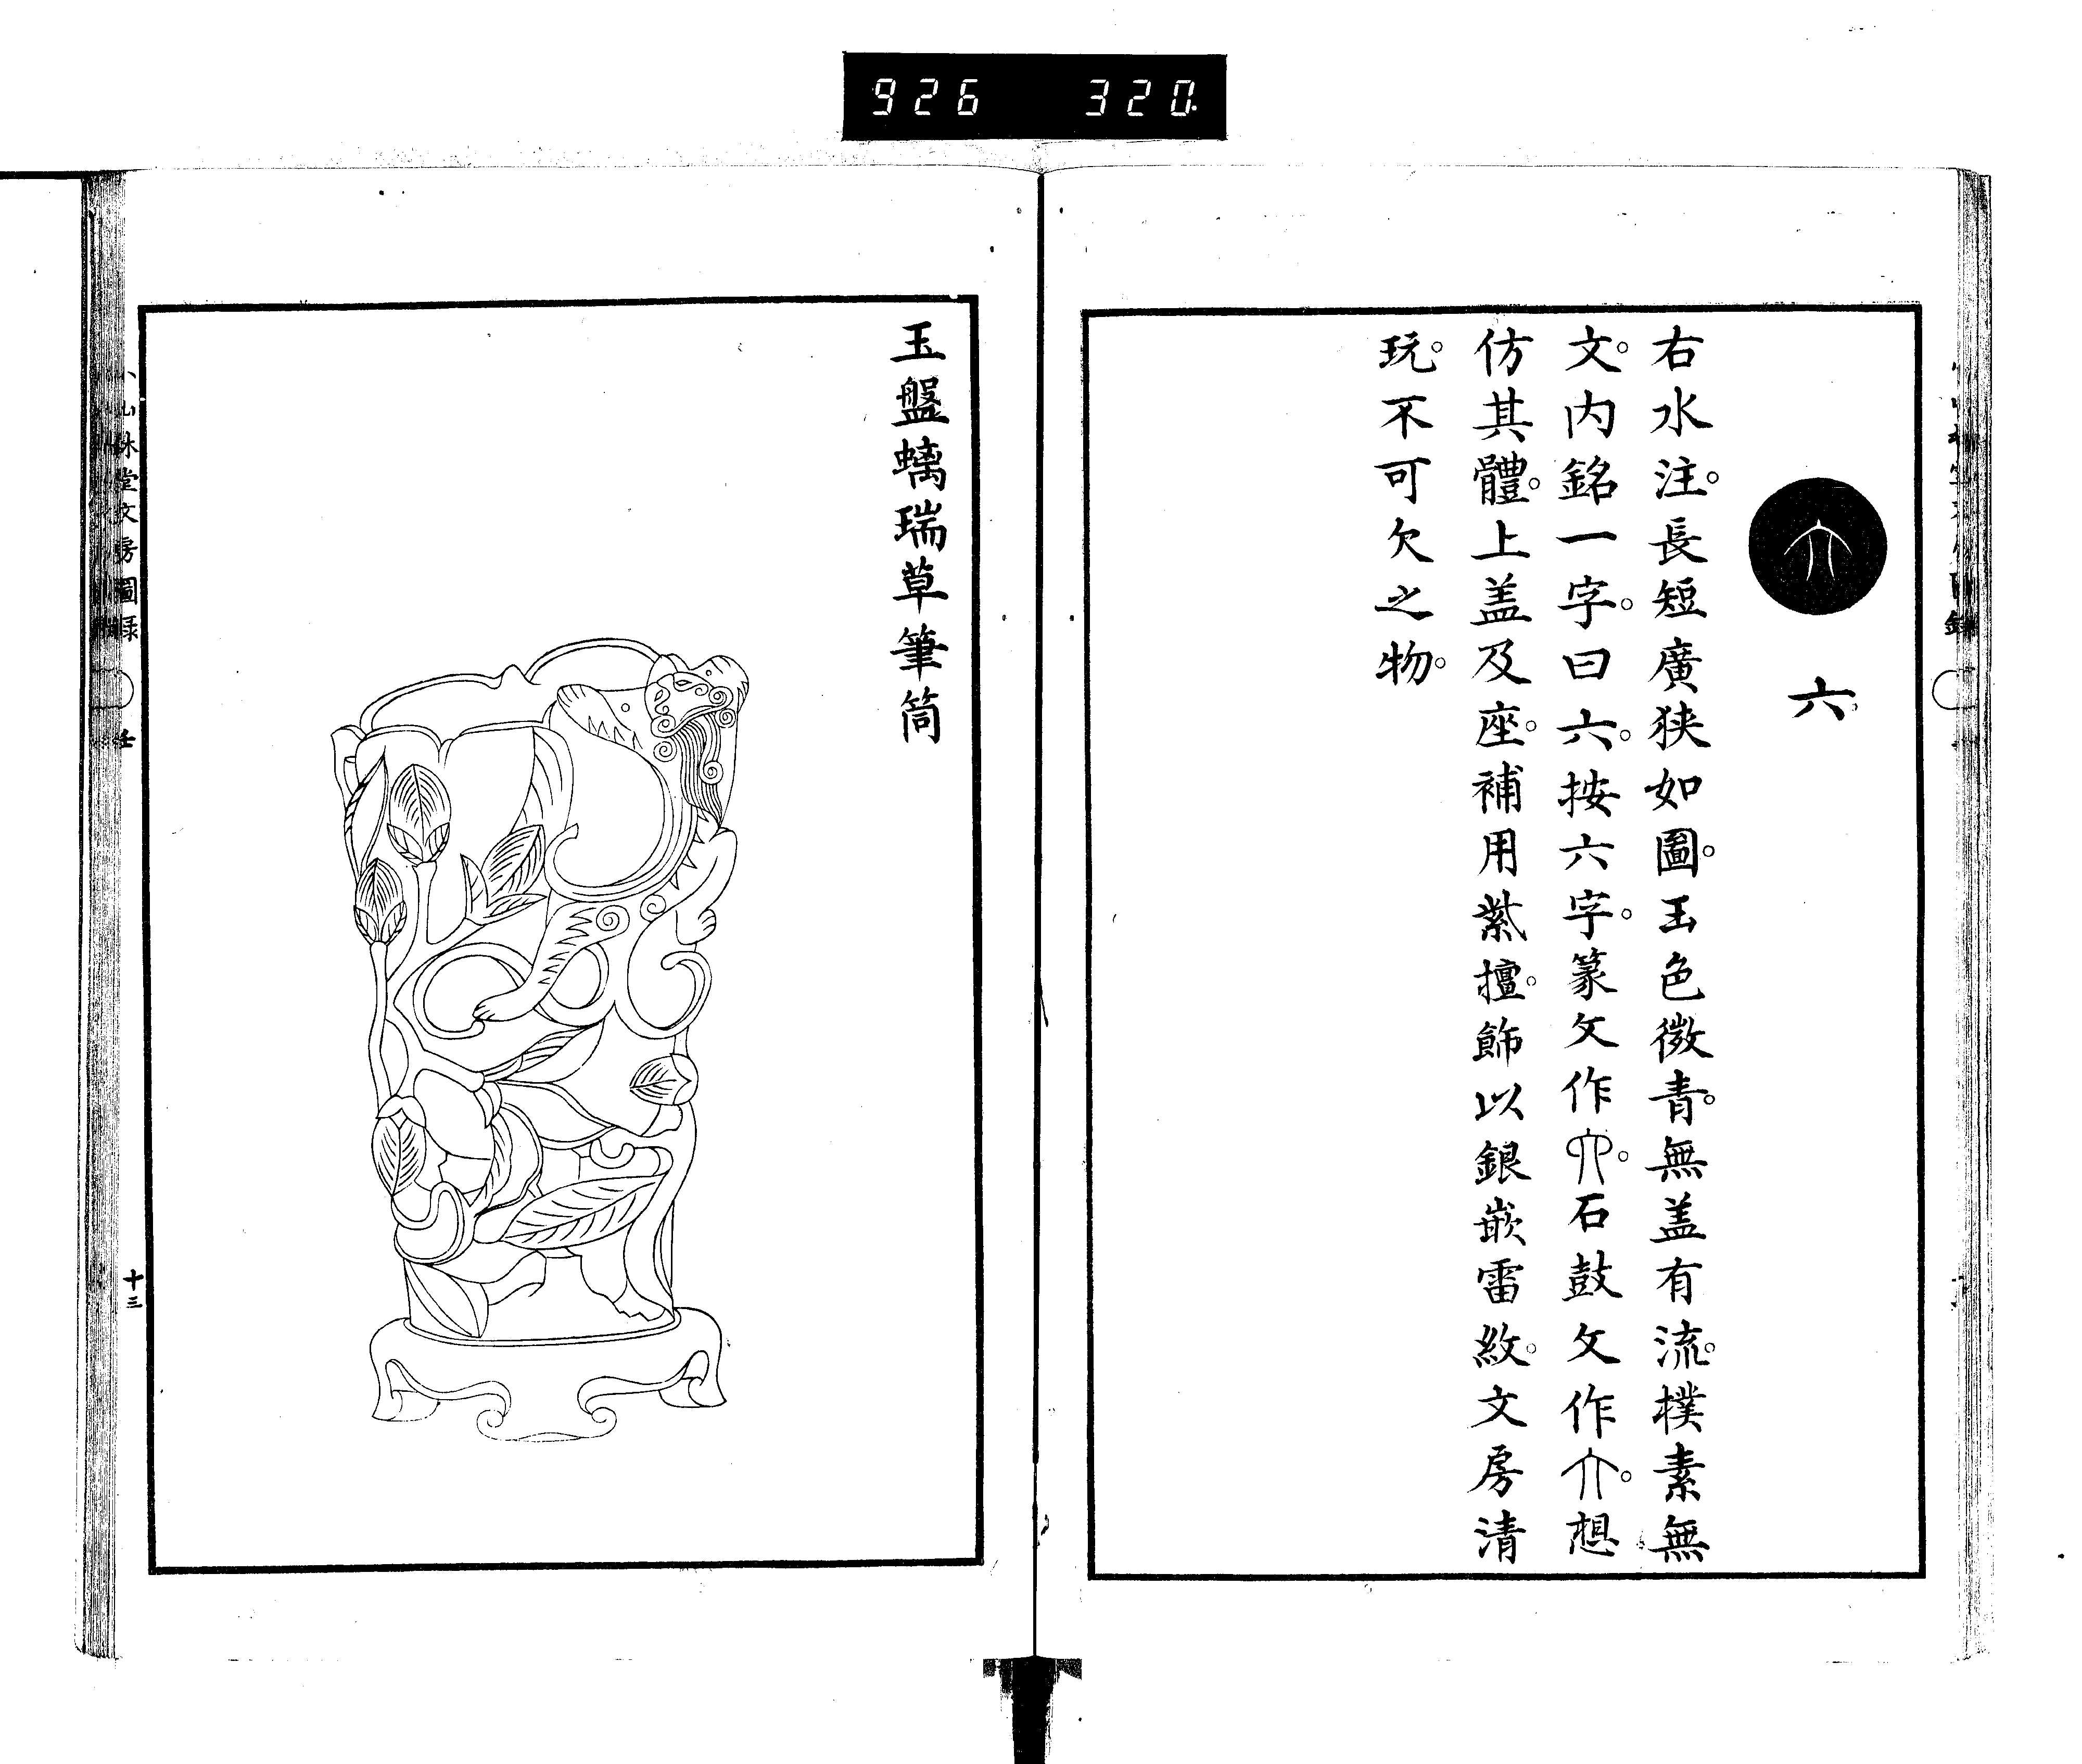 926 320
六
右水注。長短廣狭如圖。玉色微青。無盖有流。樸素無
文。内銘一字。曰六。按六字。篆文作。石鼓文作。想
仿其體。上盖及座。補用紫檀。飾以銀嵌雷紋。文房清
玩。不可欠之物。
玉盤螭瑞草筆筒
小山林堂文房圖録 壬
十三